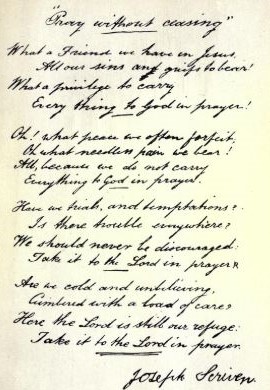 "Pray without ceasing"
What a Friend we have in Jesus,
All our sins and griefs to bear!
What a privilege to carry
Every thing to God in prayer!
Oh! what peace we often forfeit,
Oh what needless pain we bear!
All, because we do not carry
Everything to God in prayer.
Have we trials, and temptations?
Is there trouble everywhere?
We should never be discouraged:
Take it to the Lord in prayer.
Are we cold and unbelieving,
Cumbered with a load of care?
Here the Lord is still our refuge:
Take it to the Lord in prayer.
Joseph Scriven